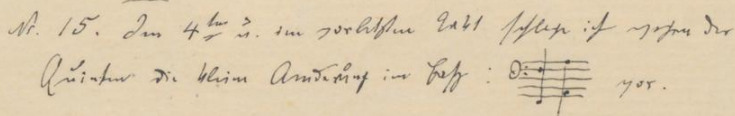 Nr. 15. Im 4ten u. im vorletzten Takt schlage ich wegen der
Quinten die kleine Änderung im Baß: vor.